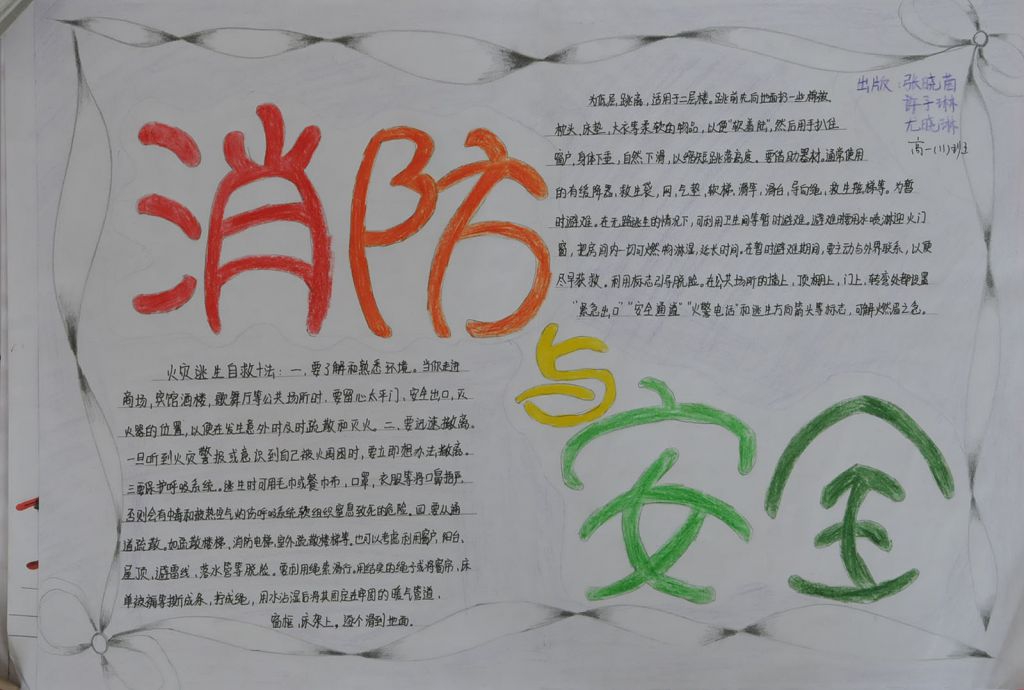 消防与安全
出版：张晓苗
许子琳
尤晓琳
高一(11)班
火灾逃生自救十法：一、要了解和熟悉环境。当你走进
商场，宾馆酒楼，歌舞厅等公共场所时，要留心太平门、安全出口，灭
火器的位置，以便在发生意外时及时疏散和灭火。二、要迅速撤离。
一旦听到火灾警报或意识到自己被火围困时，要立即想办法撤离。
三要保护呼吸系统。逃生时可用毛巾或餐巾布，口罩，衣服等将口鼻捂严，
否则会有中毒和被热空气灼伤呼吸系统软组织窒息致死的危险。四 要从通
道疏散。如疏散楼梯、消防电梯、室外疏散楼梯等。也可以考虑利用窗户，阳台、
屋顶，避雷线，落水管等脱险。要利用绳索滑行。用结实的绳子或将窗帘，床
单被褥等撕成条，拧成绳，用水沾湿后将其固定在牢固的暖气管道、
窗框，床架上。逐个滑到地面。
为低层跳离，适用于二层楼。跳前先向地面扔一些棉被、
枕头、床垫、大衣等柔软的物品，以便"软着陆"，然后用手扒住
窗户，身体下垂，自然下滑，以缩短跳落高度。要借助器材。通常使用
的有缓降器，救生袋，网，气垫，软梯，滑竿，滑台，导向绳，救生舷梯等。为暂
时避难。在无路逃生的情况下，可利用卫生间等暂时避难。避难时要用水喷淋迎火门
窗，把房间内一切可燃物淋湿，延长时间。在暂时避难期间，要主动与外界联系，以便
尽早获救。利用标志引导脱险。在公共场所的墙上，顶棚上，门上，转弯处都设置
"紧急出口""安全通道""火警电话"和逃生方向箭头等标志，可解燃眉之急。